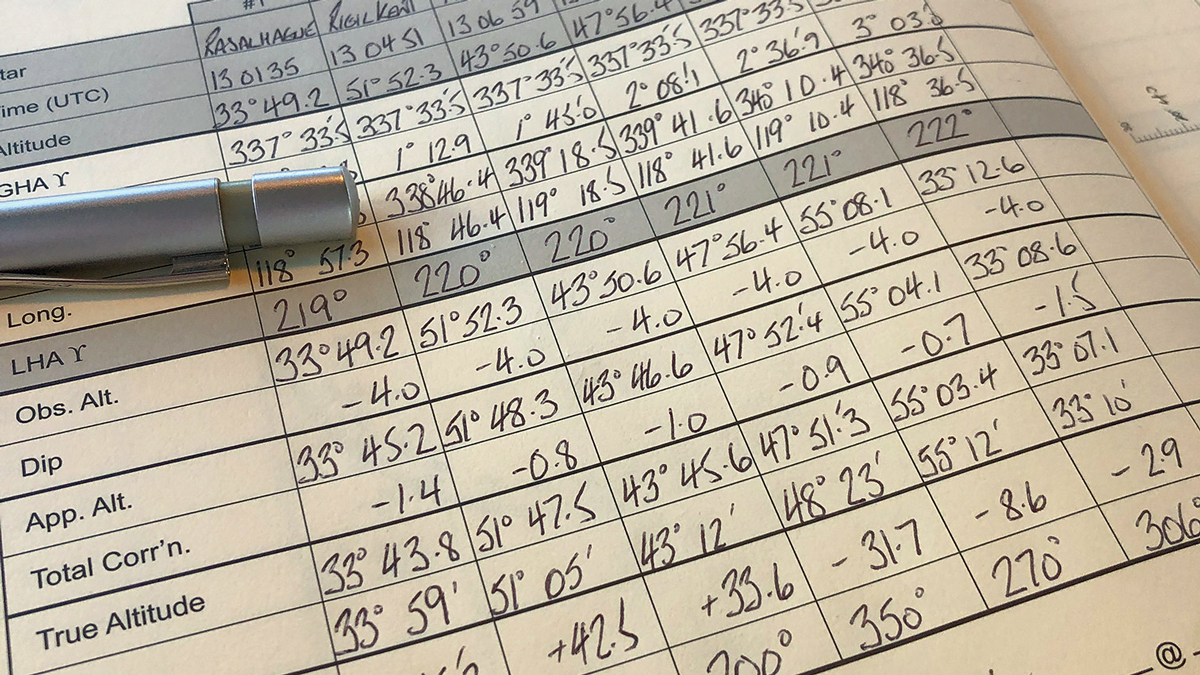 #1
tar RASALHAGUE RIGIL KENT
ime (UTC) 13 01 35 13 04 51 13 06 59
Altitude 33° 49.2 51° 52.3 43° 50.6 47° 56.4
GHA ♈ 337° 33.5 337° 33.5 337° 33.5 337° 33.5 337° 33.5
1° 12.9 1° 45.0 2° 08.1 2° 36.9 3° 03.
338° 46.4 339° 18.5 339° 41.6 340° 10.4 340° 36.5
Long. 118° 57.3 118° 46.4 119° 18.5 118° 41.6 119° 10.4 118° 36.5
LHA ♈ 219° 220° 220° 221° 221° 222°
Obs. Alt. 33° 49.2 51° 52.3 43° 50.6 47° 56.4 55° 08.1 33° 12.6
Dip -4.0 -4.0 -4.0 -4.0 -4.0 -4.0
App. Alt. 33° 45.2 51° 48.3 43° 46.6 47° 52.4 55° 04.1 33° 08.6
Total Corr'n. -1.4 -0.8 -1.0 -0.9 -0.7 -1.5
True Altitude 33° 43.8 51° 47.5 43° 45.6 47° 51.3 55° 03.4 33° 07.1
33° 59' 51° 05' 43° 12' 48° 23' 55° 12' 33° 10'
+42.5 +33.6 -31.7 -8.6 -2.9
200° 350° 270° 306°
@